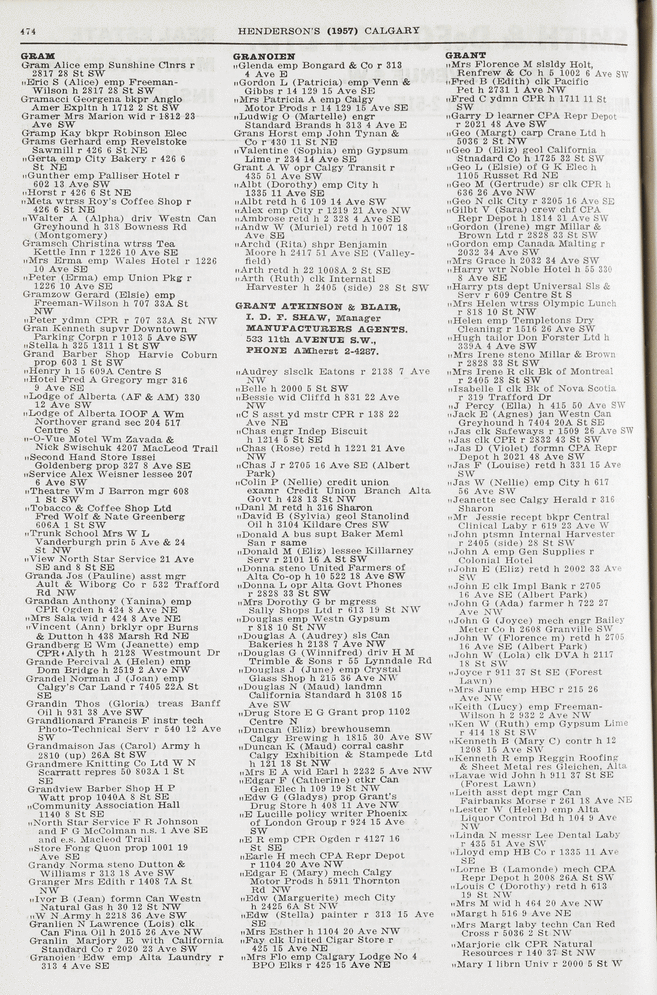 474
HENDERSON'S (1957) CALGARY
GRAM
Gram Alice emp Sunshine Clnrs r
2817 28 St SW
„Eric S (Alice) emp Freeman-
Wilson h 2817 28 St SW
Gramacci Georgena bkpr Anglo
Amer Expltn h 1712 2 St SW
Gramer Mrs Marion wid r 1812 23
Ave SW
Gramp Kay bkpr Robinson Elec
Grams Gerhard emp Revelstoke
Sawmill r 426 6 St NE
„Gerta emp City Bakery r 426 6
St NE
„Gunther emp Palliser Hotel r
602 13 Ave SW
„Horst r 426 6 St NE
„Meta wtrss Roy's Coffee Shop r
426 6 St NE
„Walter A (Alpha) driv Westn Can
Greyhound h 318 Bowness Rd
(Montgomery)
Gramsch Christina wtrss Tea
Kettle Inn r 1226 10 Ave SE
„Mrs Erma emp Wales Hotel r 1226
10 Ave SE
„Peter (Erma) emp Union Pkg r
1226 10 Ave SE
Gramzow Gerard (Elsie) emp
Freeman-Wilson h 707 33A St
NW
„Peter ydmn CPR r 707 33A St NW
Gran Kenneth supvr Downtown
Parking Corpn r 1013 5 Ave SW
„Stella h 325 1311 1 St SW
Grand Barber Shop Harvie Coburn
prop 603 1 St SW
„Henry h 15 609A Centre S
„Hotel Fred A Gregory mgr 316
9 Ave SE
„Lodge of Alberta (AF & AM) 330
12 Ave SW
„Lodge of Alberta IOOF A Wm
Northover grand sec 204 517
Centre S
„-O-Vue Motel Wm Zavada &
Nick Swischuk 4207 MacLeod Trail
„Second Hand Store Issei
Goldenberg prop 327 8 Ave SE
„Service Alex Weisner lessee 207
6 Ave SW
„Theatre Wm J Barron mgr 608
1 St SW
„Tobacco & Coffee Shop Ltd
Fred Wolf & Nate Greenberg
606A 1 St SW
„Trunk School Mrs W L
Vanderburgh prin 5 Ave & 24
St NW
„View North Star Service 21 Ave
SE and 8 St SE
Granda Jos (Pauline) asst mgr
Ault & Wiborg Co r 532 Trafford
Rd NW
Grandan Anthony (Yanina) emp
CPR Ogden h 424 8 Ave NE
„Mrs Sala wid r 424 8 Ave NE
„Vincent (Ann) brklyr opr Burns
& Dutton h 438 Marsh Rd NE
Grandberg E Wm (Jeanette) emp
CPR Alyth h 2128 Westmount Dr
Grande Percival A (Helen) emp
Dom Bridge h 2519 2 Ave NW
Grandel Norman J (Joan) emp
Calgy's Car Land r 7405 22A St
SE
Grandin Thos (Gloria) treas Banff
Oil h 931 38 Ave SW
Grandlionard Francis F instr tech
Photo-Technical Serv r 540 12 Ave
SW
Grandmaison Jas (Carol) Army h
2810 (up) 26A St SW
Grandmere Knitting Co Ltd W N
Scarratt repres 50 803A 1 St
SE
Grandview Barber Shop H P
Watt prop 1040A 8 St SE
„Community Association Hall
1140 8 St SE
„North Star Service F R Johnson
and F G McColman n.s. 1 Ave SE
and e.s. Macleod Trail
„Store Fong Quon prop 1001 19
Ave SE
Grandy Norma steno Dutton &
Williams r 313 18 Ave SW
Granger Mrs Edith r 1408 7A St
NW
„Ivor B (Jean) formn Can Westn
Natural Gas h 30 12 St NW
„W N Army h 2218 36 Ave SW
Granlien N Lawrence (Lois) clk
Can Fina Oil h 2015 26 Ave NW
Granlin Marjory E with California
Standard Co r 2020 23 Ave SW
Granoien Edw emp Alta Laundry r
313 4 Ave SE
GRANOIEN
„Glenda emp Bongard & Co r 313
4 Ave E
„Gordon L (Patricia) emp Venn &
Gibbs r 14 129 15 Ave SE
„Mrs Patricia A emp Calgy
Motor Prods r 14 129 15 Ave SE
„Ludwig O (Martelle) engr
Standard Brands h 313 4 Ave E
Grans Horst emp John Tynan &
Co r 430 11 St NE
„Valentine (Sophia) emp Gypsum
Lime r 234 14 Ave SE
Grant A W opr Calgy Transit r
435 51 Ave SW
„Albt (Dorothy) emp City h
1335 11 Ave SE
„Albt retd h 6 109 14 Ave SW
„Alex emp City r 1219 21 Ave NW
„Ambrose retd h 2 328 4 Ave SW
„Andw W (Muriel) retd h 1007 18
Ave SW
„Archd (Rita) shpr Benjamin
Moore h 2417 51 Ave SW (Valley-
field)
„Arth retd h 22 1008A 2 St SE
„Arth (Ruth) clk Internatl
Harvester h 2405 (side) 28 St SW
GRANT ATKINSON & BLAIR,
I. D. F. SHAW, Manager
MANUFACTURERS AGENTS.
533 11th AVENUE S.W.,
PHONE AMherst 2-4287.
„Audrey slsclk Eatons r 2138 7 Ave
NW
„Belle h 2000 5 St SW
„Bessie wid Cliffd h 831 22 Ave
NW
„C S asst yd mstr CPR r 138 22
Ave NE
„Chas engr Indep Biscuit
h 1214 5 St SE
„Chas (Rose) retd h 1221 21 Ave
NW
„Chas J r 2705 16 Ave SE (Albert
Park)
„Colin P (Nellie) credit union
examr Credit Union Branch Alta
Govt h 428 13 St NW
„Danl M retd h 316 Sharon
„David B (Sylvia) geol Stanolind
Oil h 3104 Kildare Cres SW
„Donald A bus supt Baker Meml
San r same
„Donald M (Eliz) lessee Killarney
Serv r 2101 16 A St SW
„Donna steno United Farmers of
Alta Co-op h 10 522 18 Ave SW
„Donna L opr Alta Govt Phones
r 2828 33 St SW
„Mrs Dorothy G br mgress
Sally Shops Ltd r 613 19 St NW
„Douglas emp Westn Gypsum
r 818 10 St NW
„Douglas A (Audrey) sls Can
Bakeries h 2138 7 Ave NW
„Douglas G (Winnifred) driv H M
Trimble & Sons r 55 Lynndale Rd
„Douglas J (June) emp Crystal
Glass Shop h 215 36 Ave NW
„Douglas N (Maud) landmn
California Standard h 3108 15
Ave SW
„Drug Store E G Grant prop 1102
Centre N
„Duncan (Eliz) brewhousemn
Calgy Brewing h 1815 30 Ave SW
„Duncan K (Maud) corral cashr
Calgy Exhibition & Stampede Ltd
h 121 18 St NW
„Mrs E A wid Earl h 2232 5 Ave NW
„Edgar F (Catherine) ctkr Can
Gen Elec h 109 19 St NW
„Edw G (Gladys) prop Grant's
Drug Store h 408 11 Ave NW
„E Lucille policy writer Phoenix
of London Group r 924 15 Ave
SW
„E R emp CPR Ogden r 4127 16
St SE
„Earle H mech CPA Repr Depot
r 1104 20 Ave NW
„Edgar E (Mary) mech Calgy
Motor Prods h 5911 Thornton
Rd NW
„Edw (Marguerite) mech City
h 2425 6A St NW
„Edw (Stella) painter r 313 15 Ave
SE
„Mrs Esther h 1104 20 Ave NW
„Fay clk United Cigar Store r
425 15 Ave NE
„Mrs Flo emp Calgary Lodge No 4
BPO Elks r 425 15 Ave NE
GRANT
„Mrs Florence M slsldy Holt,
Renfrew & Co h 5 1002 6 Ave SW
„Fred B (Edith) clk Pacific
Pet h 2731 1 Ave NW
„Fred C ydmn CPR h 1711 11 St
SW
„Garry D learner CPA Repr Depot
r 2021 48 Ave SW
„Geo (Margt) carp Crane Ltd h
5036 2 St NW
„Geo D (Eliz) geol California
Stnadard Co h 1725 32 St SW
„Geo L (Elsie) of G K Elec h
1105 Russet Rd NE
„Geo M (Gertrude) sr clk CPR h
636 26 Ave NW
„Geo N clk City r 3205 16 Ave SE
„Gilbt V (Sara) crew chf CPA
Repr Depot h 1814 31 Ave SW
„Gordon (Irene) mgr Millar &
Brown Ltd r 2828 33 St SW
„Gordon emp Canada Malting r
2032 34 Ave SW
„Mrs Grace h 2032 34 Ave SW
„Harry wtr Noble Hotel h 55 330
8 Ave SE
„Harry pts dept Universal Sls &
Serv r 609 Centre St S
„Mrs Helen wtrss Olympic Lunch
r 818 10 St NW
„Helen emp Templetons Dry
Cleaning r 1516 26 Ave SW
„Hugh tailor Don Forster Ltd h
339A 4 Ave SW
„Mrs Irene steno Millar & Brown
r 2828 33 St SW
„Mrs Irene R clk Bk of Montreal
r 2405 28 St SW
„Isabelle I clk Bk of Nova Scotia
r 319 Trafford Dr
„J Percy (Ella) h 415 50 Ave SW
„Jack E (Agnes) jan Westn Can
Greyhound h 7404 20A St SE
„Jas clk Safeways r 1509 26 Ave SW
„Jas clk CPR r 2832 43 St SW
„Jas D (Violet) formn CPA Repr
Depot h 2021 48 Ave SW
„Jas F (Louise) retd h 331 15 Ave
SW
„Jas W (Nellie) emp City h 617
56 Ave SW
„Jeanette sec Calgy Herald r 316
Sharon
„Mr Jessie recept bkpr Central
Clinical Laby r 619 23 Ave W
„John ptsmn Internal Harvester
r 2405 (side) 28 St SW
„John A emp Gen Supplies r
Colonial Hotel
„John E (Eliz) retd h 2002 33 Ave
SW
„John E clk Impl Bank r 2705
16 Ave SE (Albert Park)
„John G (Ada) farmer h 722 27
Ave NW
„John G (Joyce) mech engr Bailey
Meter Co h 2608 Granville SW
„John W (Florence m) retd h 2705
16 Ave SE (Albert Park)
„John W (Lola) clk DVA h 2117
18 St SW
„Joyce r 911 37 St SE (Forest
Lawn)
„Mrs June emp HBC r 215 26
Ave NW
„Keith (Lucy) emp Freeman-
Wilson h 2 932 2 Ave NW
„Ken W (Ruth) emp Gypsum Lime
r 414 18 St SW
„Kenneth B (Mary C) contr h 12
1208 15 Ave SW
„Kenneth R emp Reggin Roofing
& Sheet Metal res Gleichen, Alta
„Lavae wid John h 911 37 St SE
(Forest Lawn)
„Leith asst dept mgr Can
Fairbanks Morse r 261 18 Ave NE
„Lester W (Helen) emp Alta
Liquor Control Bd h 104 9 Ave
NW
„Linda N messr Lee Dental Laby
r 435 51 Ave SW
„Lloyd emp HB Co r 1335 11 Ave
SE
„Lorne B (Lamonde) mech CPA
Repr Depot h 2008 26A St SW
„Louis C (Dorothy) retd h 613
19 St NW
„Mrs M wid h 464 20 Ave NW
„Margt h 516 9 Ave NE
„Mrs Margt laby techn Can Red
Cross r 5036 2 St NW
„Marjorie clk CPR Natural
Resources r 140 37 St NW
„Mary I librn Univ r 2000 5 St W